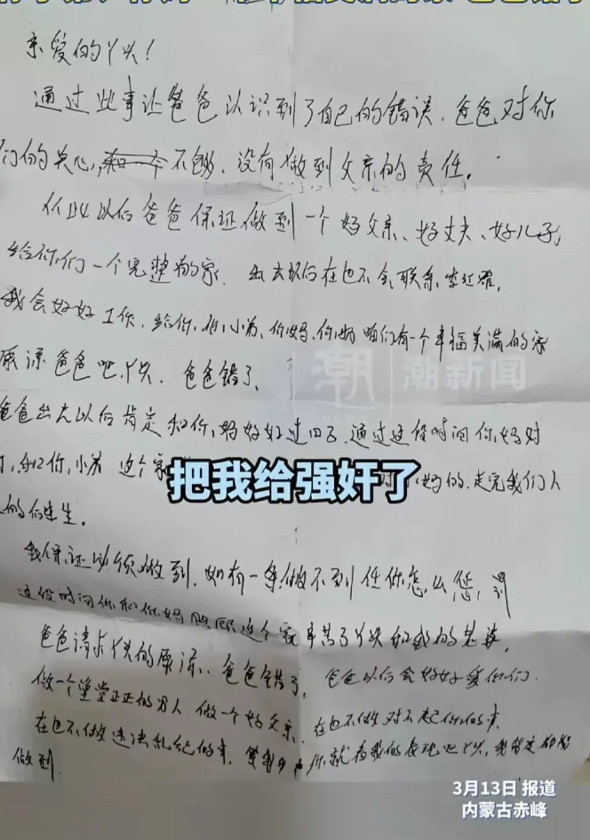 亲爱的丫头!
通过此事让爸爸认识到了自己的错误.爸爸对你
们的关心,不够.没有做到父亲的责任.
从此以后爸爸保证做到一个好父亲、好丈夫、好儿子,
给你们一个完整的家.出去以后在也不会联系李红
我会好好工作,给你,小弟、你妈,咱们有一个幸福美满的家
原谅爸爸吧丫头.爸爸错了、
潮新闻
爸爸出去以后肯定和你,妈好好过日子.通过这段时间你,妈对
和你,小弟 这个家 好的.走完我们人
把我给强奸了
生。
我保证必须做到.如有一条做不到任你怎么惩罚
这段时间你和你妈照顾这个家 辛苦了丫头和我的老婆.
爸爸请求丫头的原谅.爸爸错了, 爸爸以后会好好爱你们.
做一个堂堂正正的男人 做一个好父亲. 在也不做对不起你们的事.
在也不做违法乱纪的事. 你就看我的表现吧丫头,我肯定
做到.
3月13日 报道
内蒙古赤峰